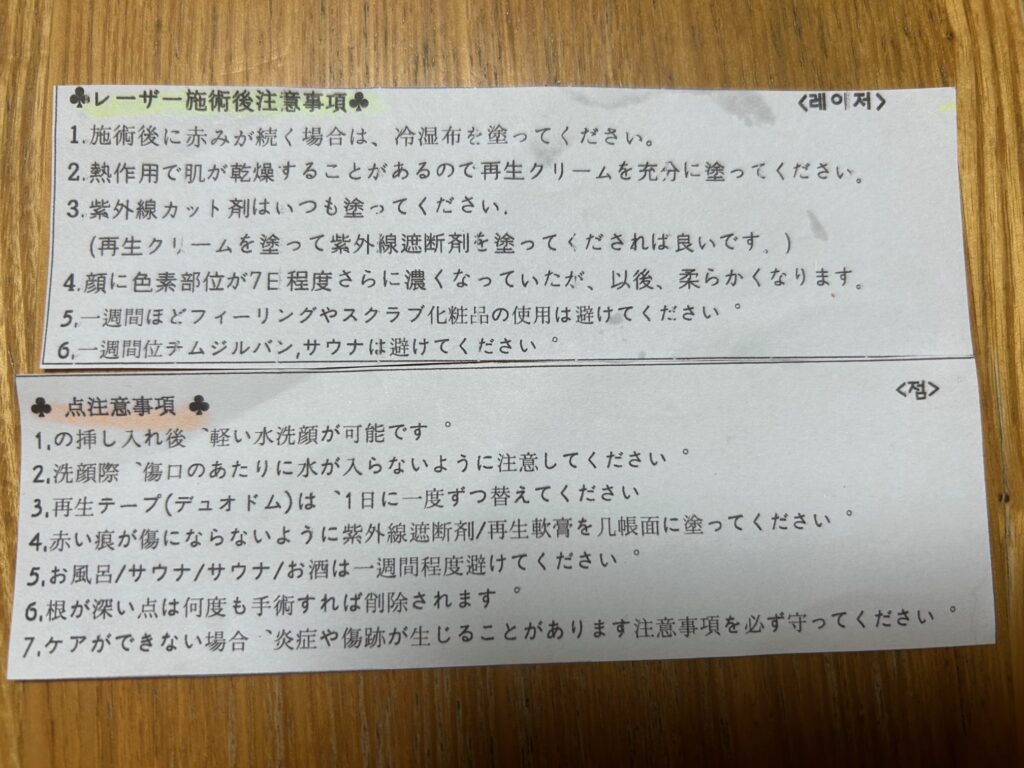 ♣レーザー施術後注意事項♣ <레이저>
1.施術後に赤みが続く場合は、冷湿布を塗ってください。
2.熱作用で肌が乾燥することがあるので再生クリームを充分に塗ってください。
3.紫外線カット剤はいつも塗ってください.
(再生クリームを塗って紫外線遮断剤を塗ってくだされば良いです。)
4.顔に色素部位が7日程度さらに濃くなっていたが、以後、柔らかくなります。
5,一週間ほどフィーリングやスクラブ化粧品の使用は避けてください゜
6,一週間位チムジルバン,サウナは避けてください゜
♣ 点注意事項 ♣ <점>
1,の挿し入れ後〝軽い水洗顔が可能です゜
2,洗顔際〝傷口のあたりに水が入らないように注意してください゜
3,再生テープ(デュオドム)は〝1日に一度ずつ替えてください
4,赤い痕が傷にならないように紫外線遮断剤/再生軟膏を几帳面に塗ってください゜
5,お風呂/サウナ/サウナ/お酒は一週間程度避けてください゜
6,根が深い点は何度も手術すれば削除されます゜
7,ケアができない場合〝炎症や傷跡が生じることがあります注意事項を必ず守ってください゜